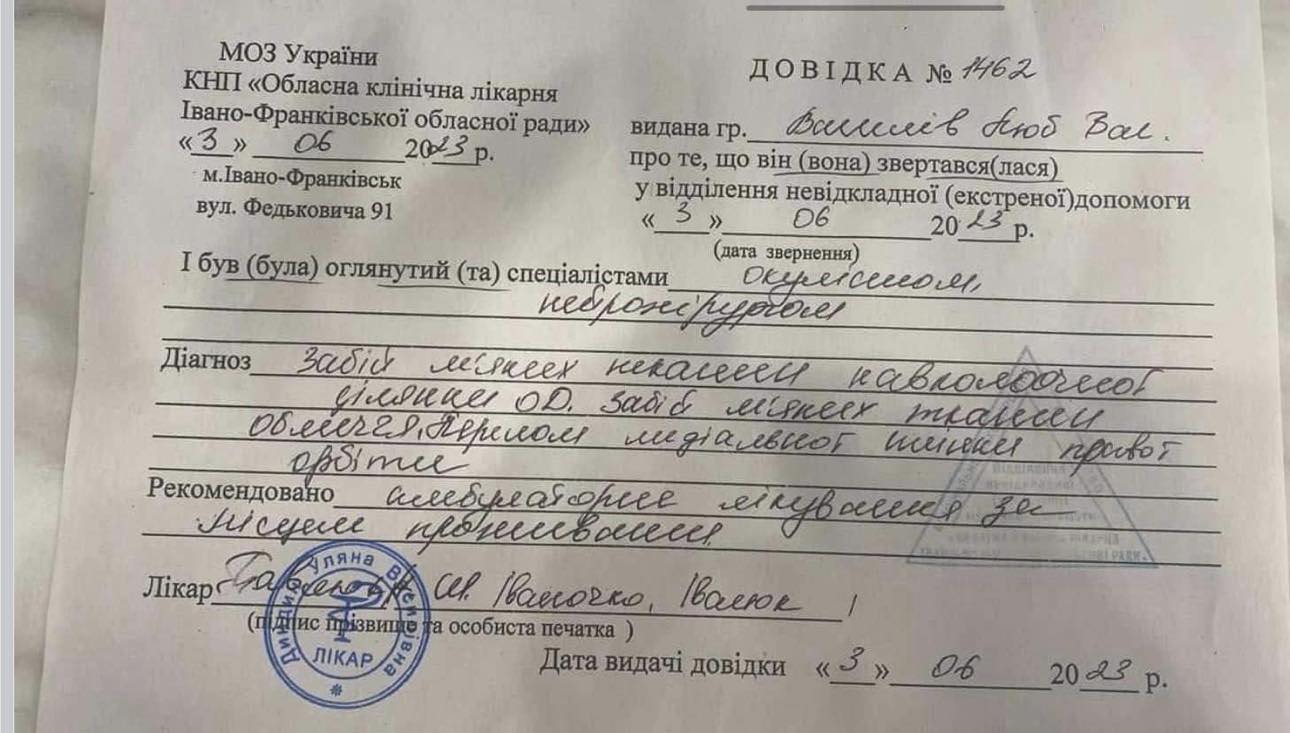 МОЗ України
КНП «Обласна клінічна лікарня
Івано-Франківської обласної ради»
«3» 06 2023 р.
м.Івано-Франківськ
вул. Федьковича 91
ДОВІДКА № 1462
видана гр. Василів Люб Вас.
про те, що він (вона) звертався(лася)
у відділення невідкладної (екстреної)допомоги
«3» 06 2023 р.
(дата звернення)
І був (була) оглянутий (та) спеціалістами окулістом,
нейрохірургом
Діагноз Забій м'яких тканин навколоочної
ділянки OD. Забій м'яких тканин
обличчя. Перелом медіальної стінки правої
орбіти
Рекомендовано амбулаторне лікування за
місцем проживання
Лікар Іваночко, Івасюк
(підпис прізвище та особиста печатка )
Уляна
ЛІКАР
Дата видачі довідки «3» 06 2023 р.